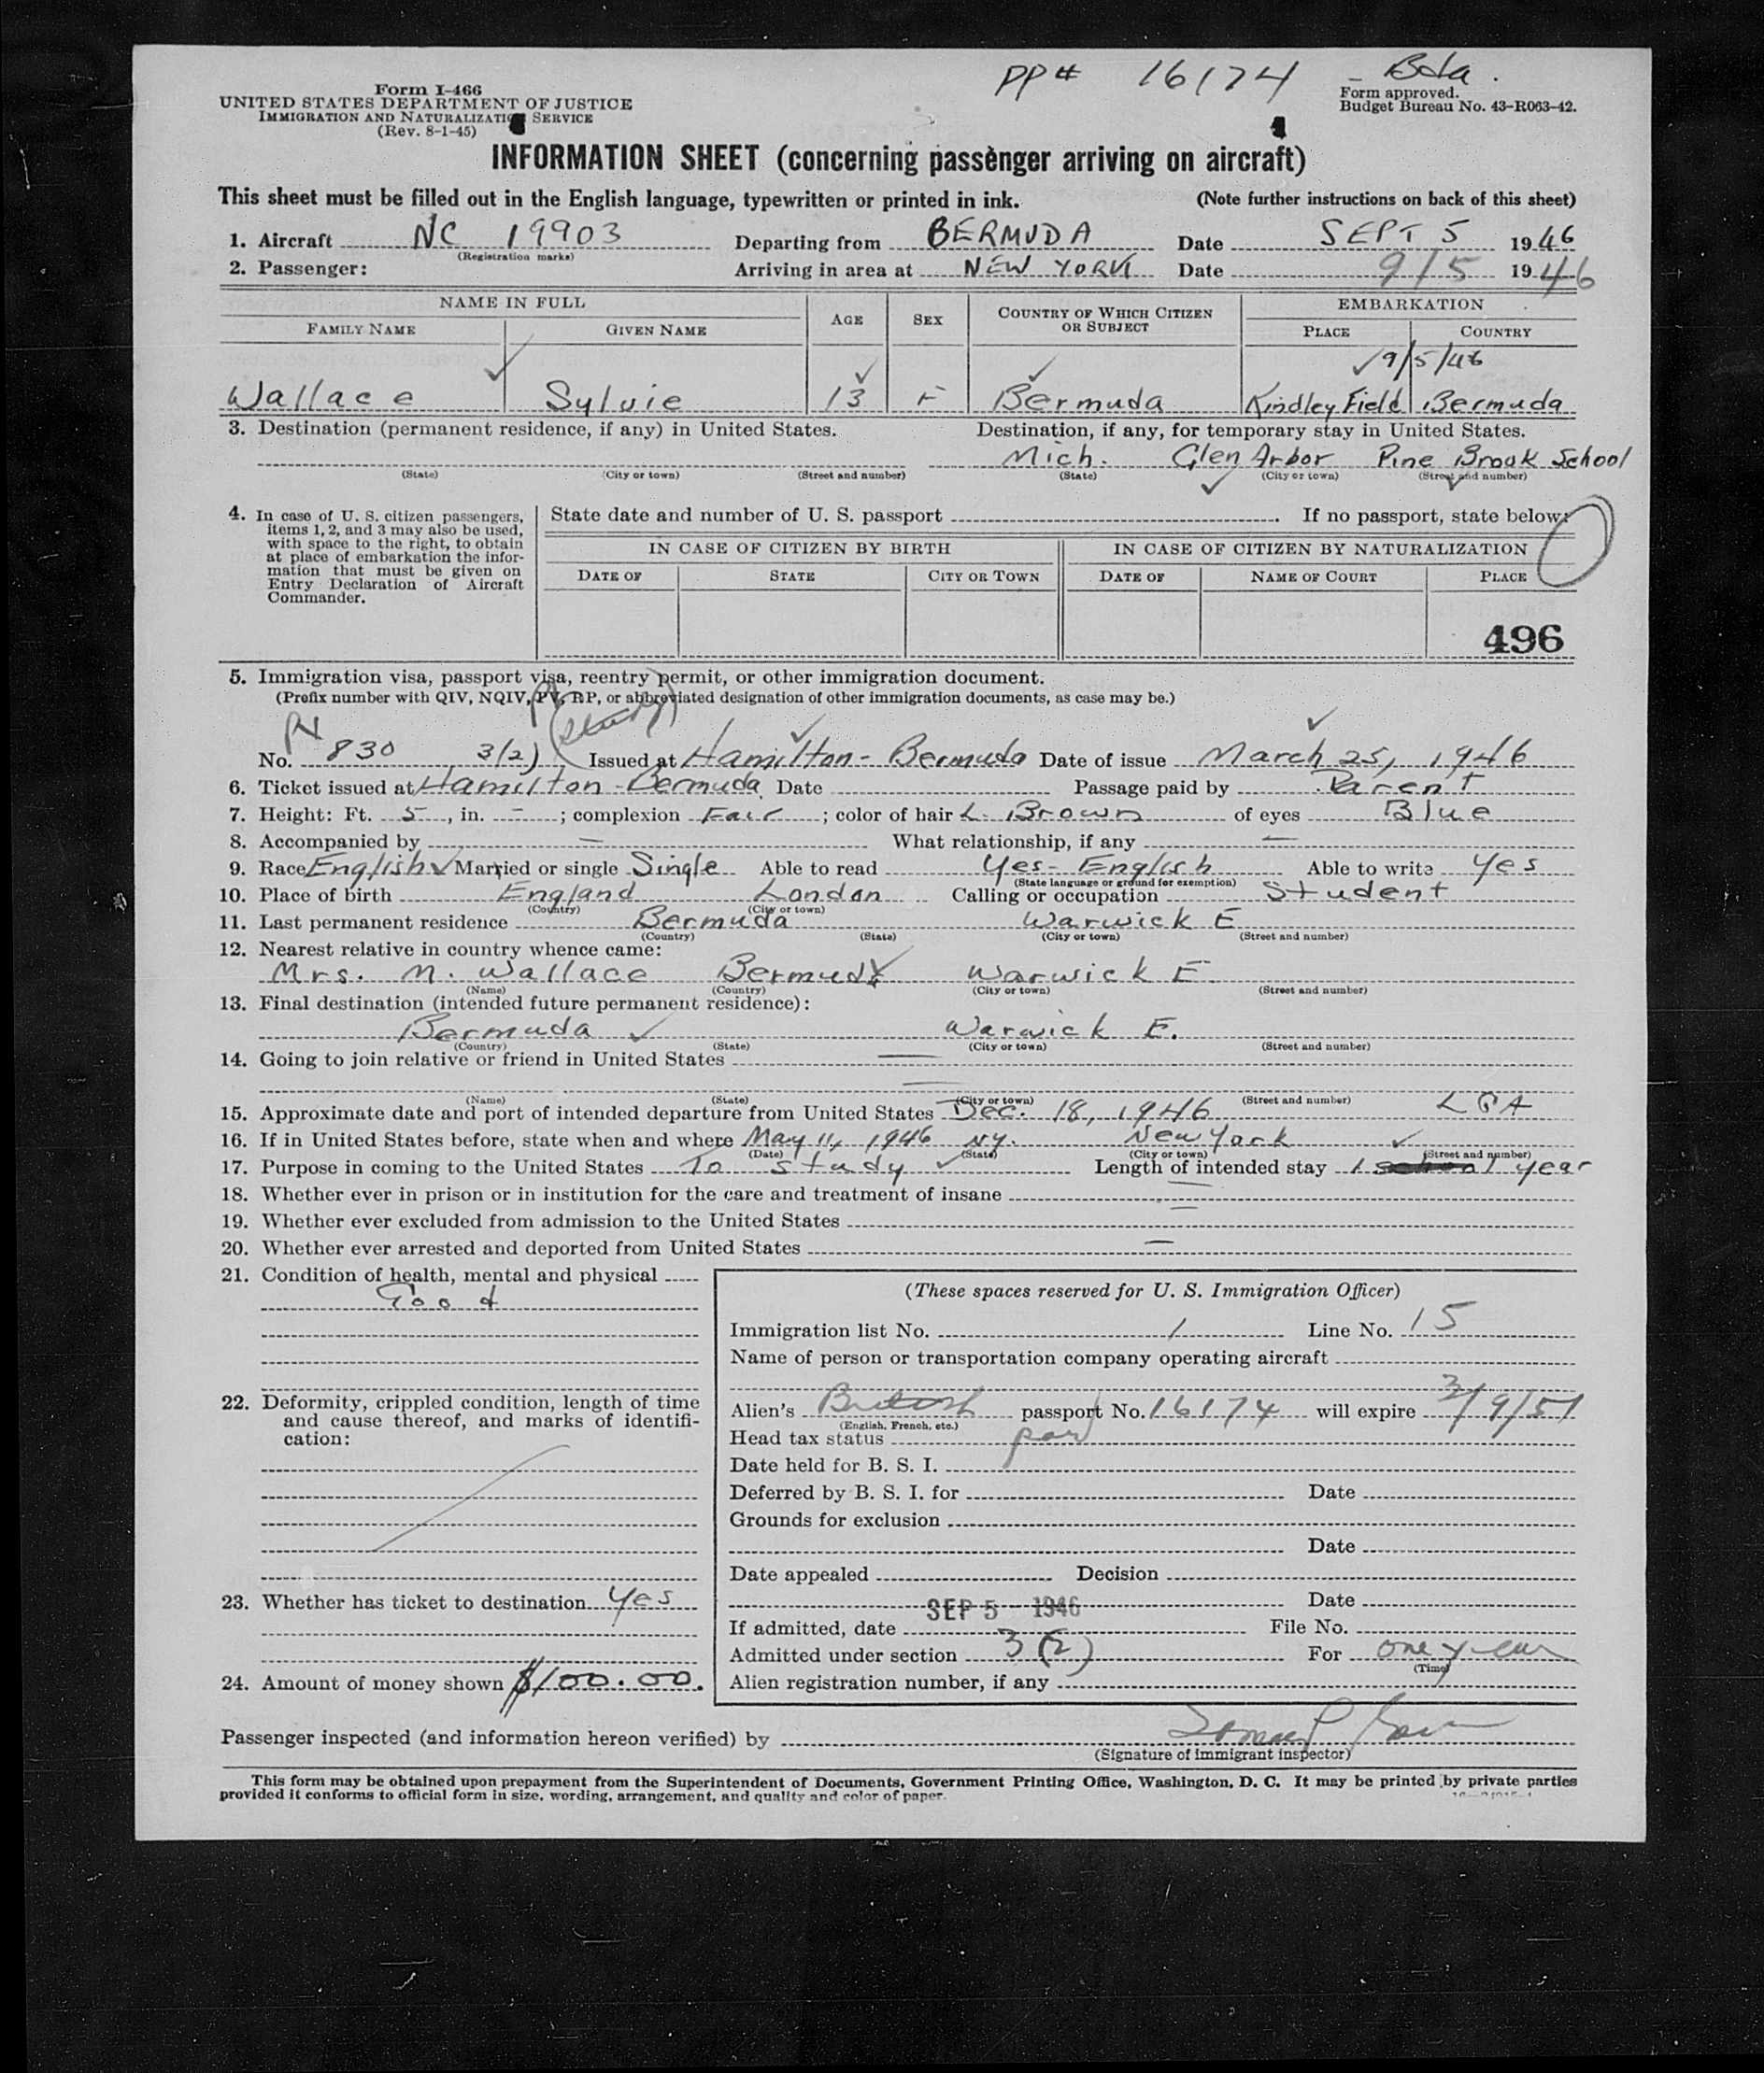 PP# 16174 - Bda.
Form I-466
UNITED STATES DEPARTMENT OF JUSTICE
IMMIGRATION AND NATURALIZATION SERVICE
(Rev. 8-1-45)
Form approved.
Budget Bureau No. 43-R063-42.
INFORMATION SHEET (concerning passenger arriving on aircraft)
This sheet must be filled out in the English language, typewritten or printed in ink. (Note further instructions on back of this sheet)
1. Aircraft NC 19903 Departing from BERMUDA Date SEPT 5 1946
(Registration marks)
2. Passenger: Arriving in area at NEW YORK Date 9/5 1946
NAME IN FULL AGE SEX COUNTRY OF WHICH CITIZEN OR SUBJECT EMBARKATION
FAMILY NAME GIVEN NAME PLACE COUNTRY
9/5/46
Wallace Sylvie 13 F Bermuda Kindley Field Bermuda
3. Destination (permanent residence, if any) in United States. Destination, if any, for temporary stay in United States.
Mich. Glen Arbor Pine Brook School
(State) (City or town) (Street and number) (State) (City or town) (Street and number)
4. In case of U. S. citizen passengers, items 1, 2, and 3 may also be used, with space to the right, to obtain at place of embarkation the information that must be given on Entry Declaration of Aircraft Commander.
State date and number of U. S. passport . If no passport, state below:
IN CASE OF CITIZEN BY BIRTH IN CASE OF CITIZEN BY NATURALIZATION
DATE OF STATE CITY OR TOWN DATE OF NAME OF COURT PLACE
496
5. Immigration visa, passport visa, reentry permit, or other immigration document.
(Prefix number with QIV, NQIV, PV, RP, or abbreviated designation of other immigration documents, as case may be.)
(Study)
No. 830 3(2) Issued at Hamilton - Bermuda Date of issue March 25, 1946
6. Ticket issued at Hamilton - Bermuda Date Passage paid by Parent
7. Height: Ft. 5, in. -; complexion Fair; color of hair L. Brown of eyes Blue
8. Accompanied by — What relationship, if any —
9. Race English Married or single Single Able to read Yes - English Able to write Yes
(State language or ground for exemption)
10. Place of birth England London Calling or occupation Student
(Country) (City or town)
11. Last permanent residence Bermuda Warwick E
(Country) (State) (City or town) (Street and number)
12. Nearest relative in country whence came:
Mrs. M. Wallace Bermuda Warwick E.
(Name) (Country) (City or town) (Street and number)
13. Final destination (intended future permanent residence):
Bermuda Warwick E.
(Country) (State) (City or town) (Street and number)
14. Going to join relative or friend in United States —
—
(Name) (State) (City or town) (Street and number)
15. Approximate date and port of intended departure from United States Dec. 18, 1946 LGA
16. If in United States before, state when and where May 11, 1946 NY. New York
(Date) (State) (City or town) (Street and number)
17. Purpose in coming to the United States To study Length of intended stay 1 school year
18. Whether ever in prison or in institution for the care and treatment of insane —
19. Whether ever excluded from admission to the United States —
20. Whether ever arrested and deported from United States —
21. Condition of health, mental and physical
Good
22. Deformity, crippled condition, length of time and cause thereof, and marks of identification:
23. Whether has ticket to destination Yes
24. Amount of money shown $100.00.
(These spaces reserved for U. S. Immigration Officer)
Immigration list No. 1 Line No. 15
Name of person or transportation company operating aircraft
Alien's British passport No. 16174 will expire 3/9/51
(English, French, etc.)
Head tax status paid
Date held for B. S. I.
Deferred by B. S. I. for Date
Grounds for exclusion
Date
Date appealed Decision
Date
SEP 5 - 1946
If admitted, date File No.
Admitted under section 3(2) For one year
(Time)
Alien registration number, if any
Passenger inspected (and information hereon verified) by
(Signature of immigrant inspector)
This form may be obtained upon prepayment from the Superintendent of Documents, Government Printing Office, Washington, D. C. It may be printed by private parties
provided it conforms to official form in size, wording, arrangement, and quality and color of paper.